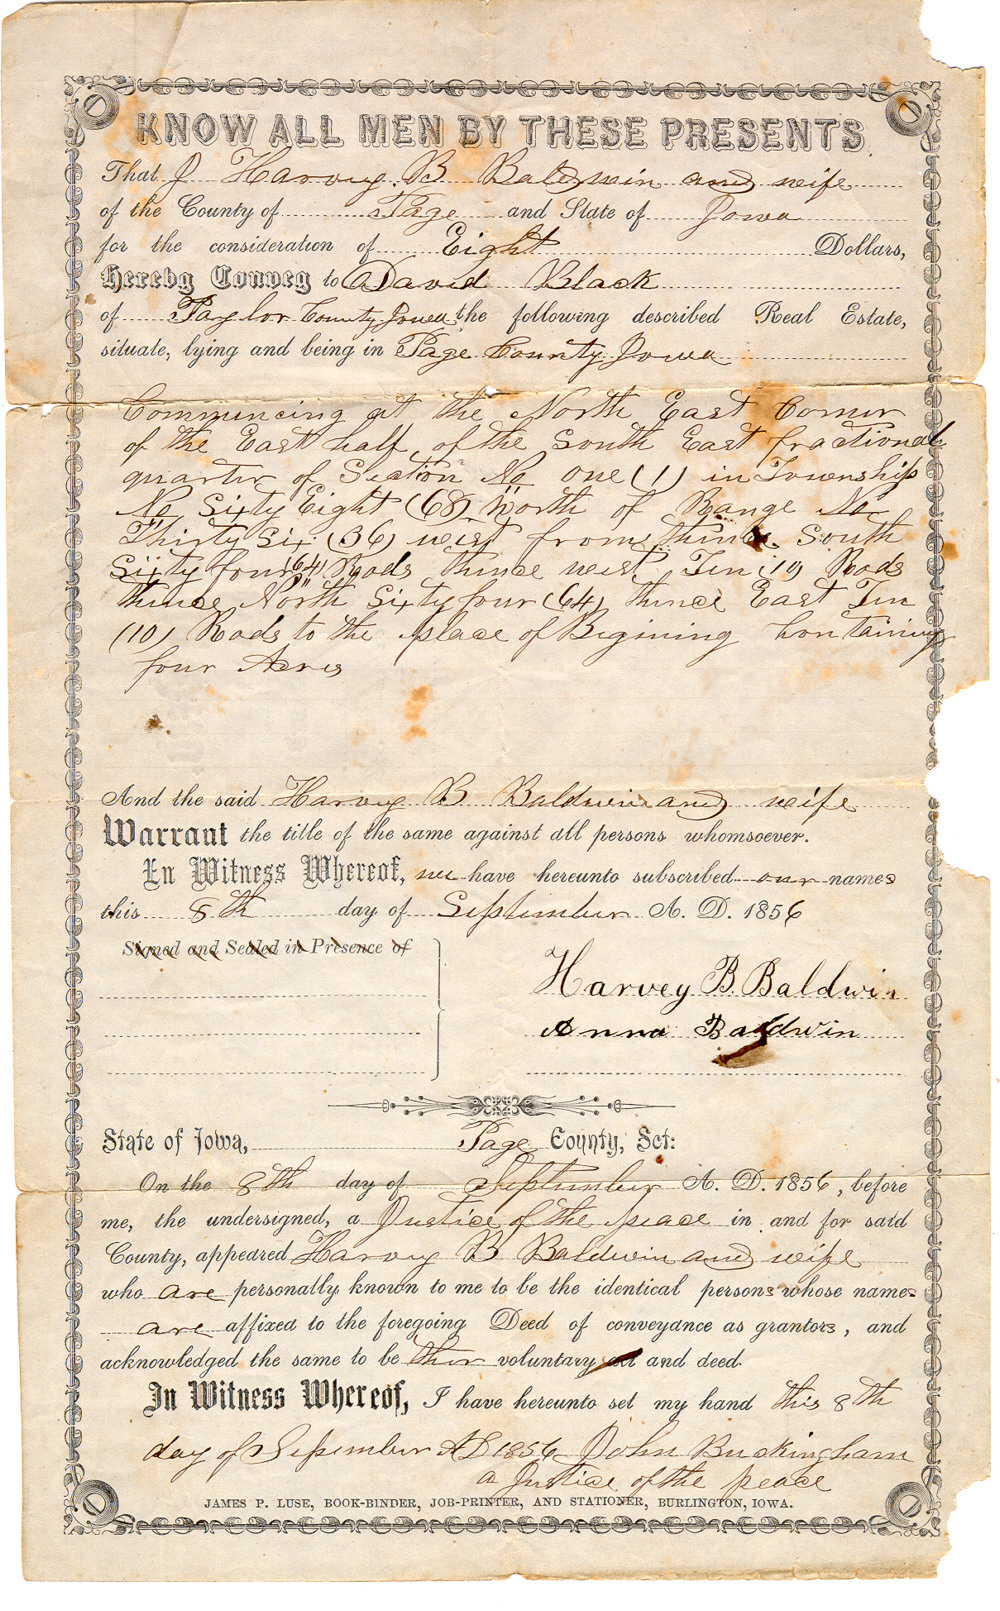 KNOW ALL MEN BY THESE PRESENTS
That I Harvey B Baldwin and wife
of the County of Page and State of Iowa
for the consideration of Eight Dollars,
Hereby Convey to David Black
of Taylor County Iowa the following described Real Estate,
situate, lying and being in Page County Iowa
Commencing at the North East Corner
of the East half of the South East fractional
quarter of Section No one (1) in Township
No Sixty Eight (68) North of Range No
Thirty Six (36) west from thence South
Sixty four (64) Rods thence west Ten (10) Rods
thence North Sixty four (64) thence East Ten
(10) Rods to the place of Begining Contaning
four Acres
And the said Harvey B Baldwin and wife
Warrant the title of the same against all persons whomsoever.
In Witness Whereof, we have hereunto subscribed our names
this 8th day of September A. D. 1856
Signed and Sealed in Presence of
Harvey B. Baldwin
Anna Baldwin
State of Iowa, Page County, Sct:
On the 8th day of September A. D. 1856, before
me, the undersigned, a Justice of the peace in and for said
County, appeared Harvey B Baldwin and wife
who are personally known to me to be the identical persons whose names
are affixed to the foregoing Deed of conveyance as grantors, and
acknowledged the same to be their voluntary act and deed.
In Witness Whereof, I have hereunto set my hand this 8th
day of September AD 1856 John Buckingham
a Justice of the peace
JAMES P. LUSE, BOOK-BINDER, JOB-PRINTER, AND STATIONER, BURLINGTON, IOWA.